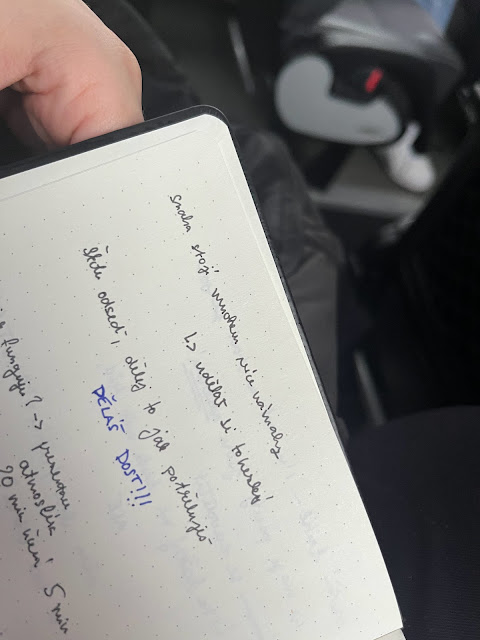 Snaha stojí mnohem více námahy
↳ udělat si to hezký
dělej to jak potřebuješ
DĚLÁŠ DOST!!!
funguje? ->
20 min učení 5 min